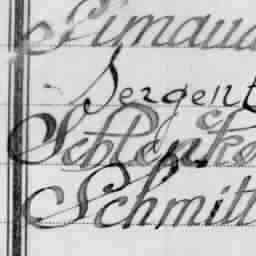 Simaud
Sergent
Schlencko
Schmitt